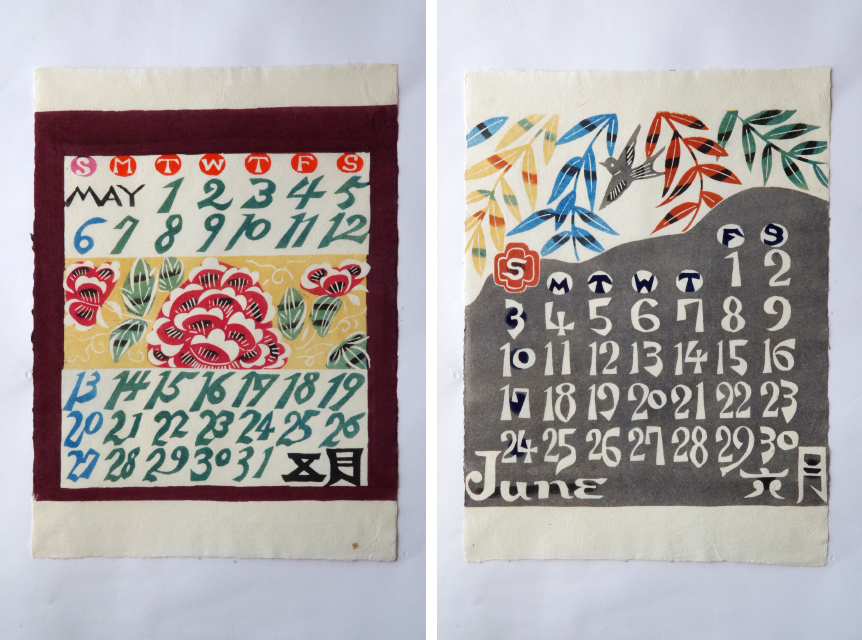 S M T W T F S
MAY 1 2 3 4 5
6 7 8 9 10 11 12
13 14 15 16 17 18 19
20 21 22 23 24 25 26
27 28 29 30 31 五月
S M T W T F S
1 2
3 4 5 6 7 8 9
10 11 12 13 14 15 16
17 18 19 20 21 22 23
24 25 26 27 28 29 30
June 六月